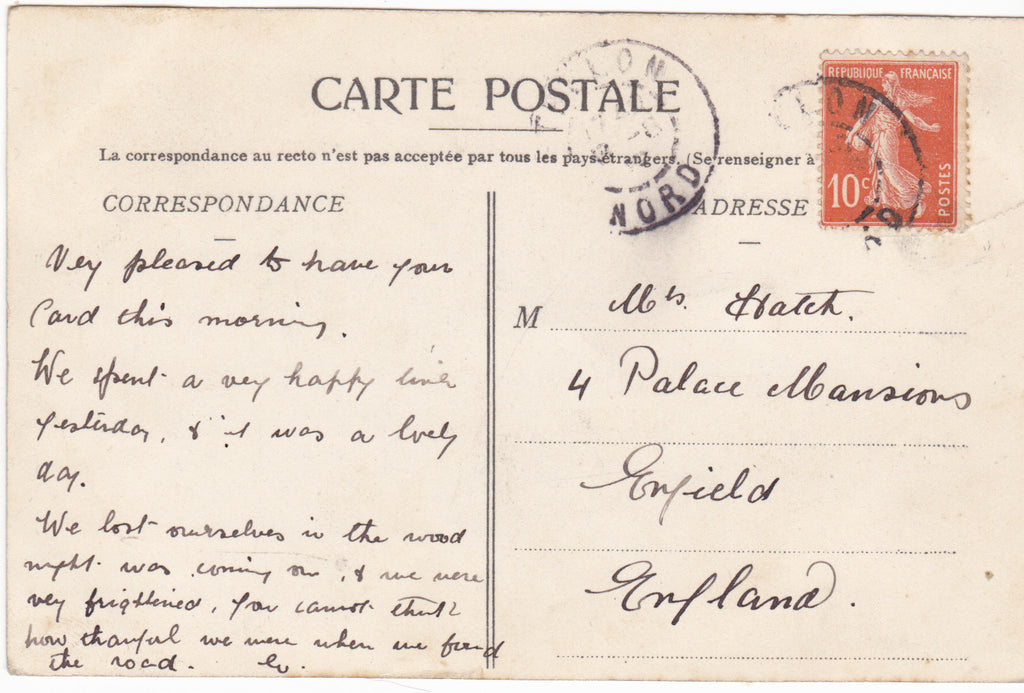 CARTE POSTALE
La correspondance au recto n'est pas acceptée par tous les pays étrangers. (Se renseigner à
CORRESPONDANCE
ADRESSE
RÉPUBLIQUE FRANÇAISE
10c
POSTES
LON
NORD
LON
Very pleased to have your
Card this morning.
We spent a very happy time
yesterday, & it was a lovely
day.
We lost ourselves in the wood
night was coming on, & we were
very frightened, you cannot think
how thankful we were when we found
the road.
M Mrs. Hatch.
4 Palace Mansions
Enfield
England.